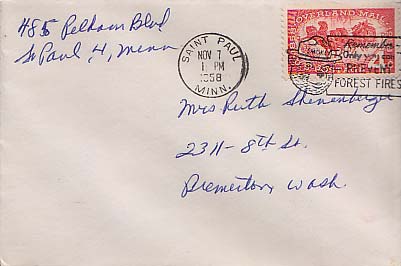 485 Pelham Blvd
St Paul, 4, Minn
SAINT PAUL
NOV 7
1 PM
1958
MINN.
OVERLAND MAIL
Remember
Only you can
PREVENT
FOREST FIRES
Mrs Ruth Shenenberger
2311 - 8th St.
Bremerton, Wash.